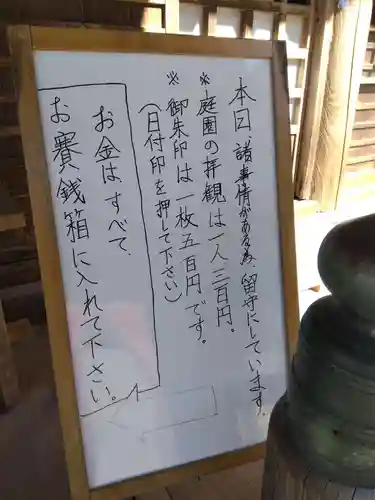 本日諸事情がある為、留守にしています。
※庭園の拝観は一人三百円。
※御朱印は一枚五百円です。
(日付印を押して下さい)
お金は、すべて、
お賽銭箱に入れて下さい。